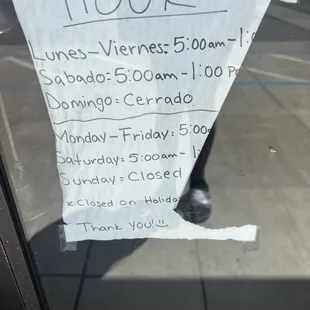 HOUR
Lunes-Viernes: 5:00am-1:
Sabado: 5:00am-1:00 P
Domingo: Cerrado
Monday-Friday: 5:00
Saturday: 5:00am-1
Sunday: Closed
*Closed on Holida
Thank you!